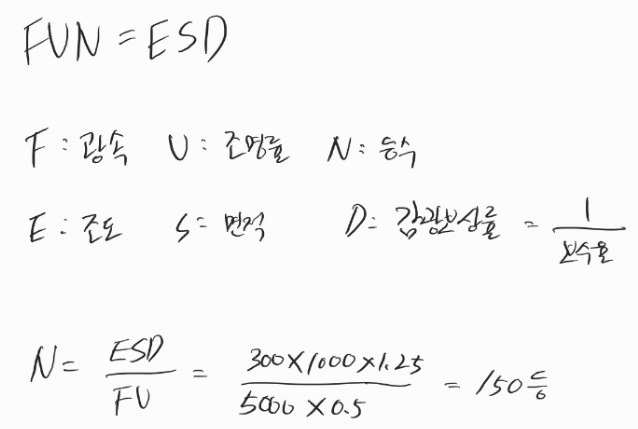 FUN = ESD
F : 광속 U : 조명률 N : 등수
E : 조도 S = 면적 D : 감광보상률 = 1 / 보수율
N = ESD / FU = 300×1000×1.25 / 5000×0.5 = 150등